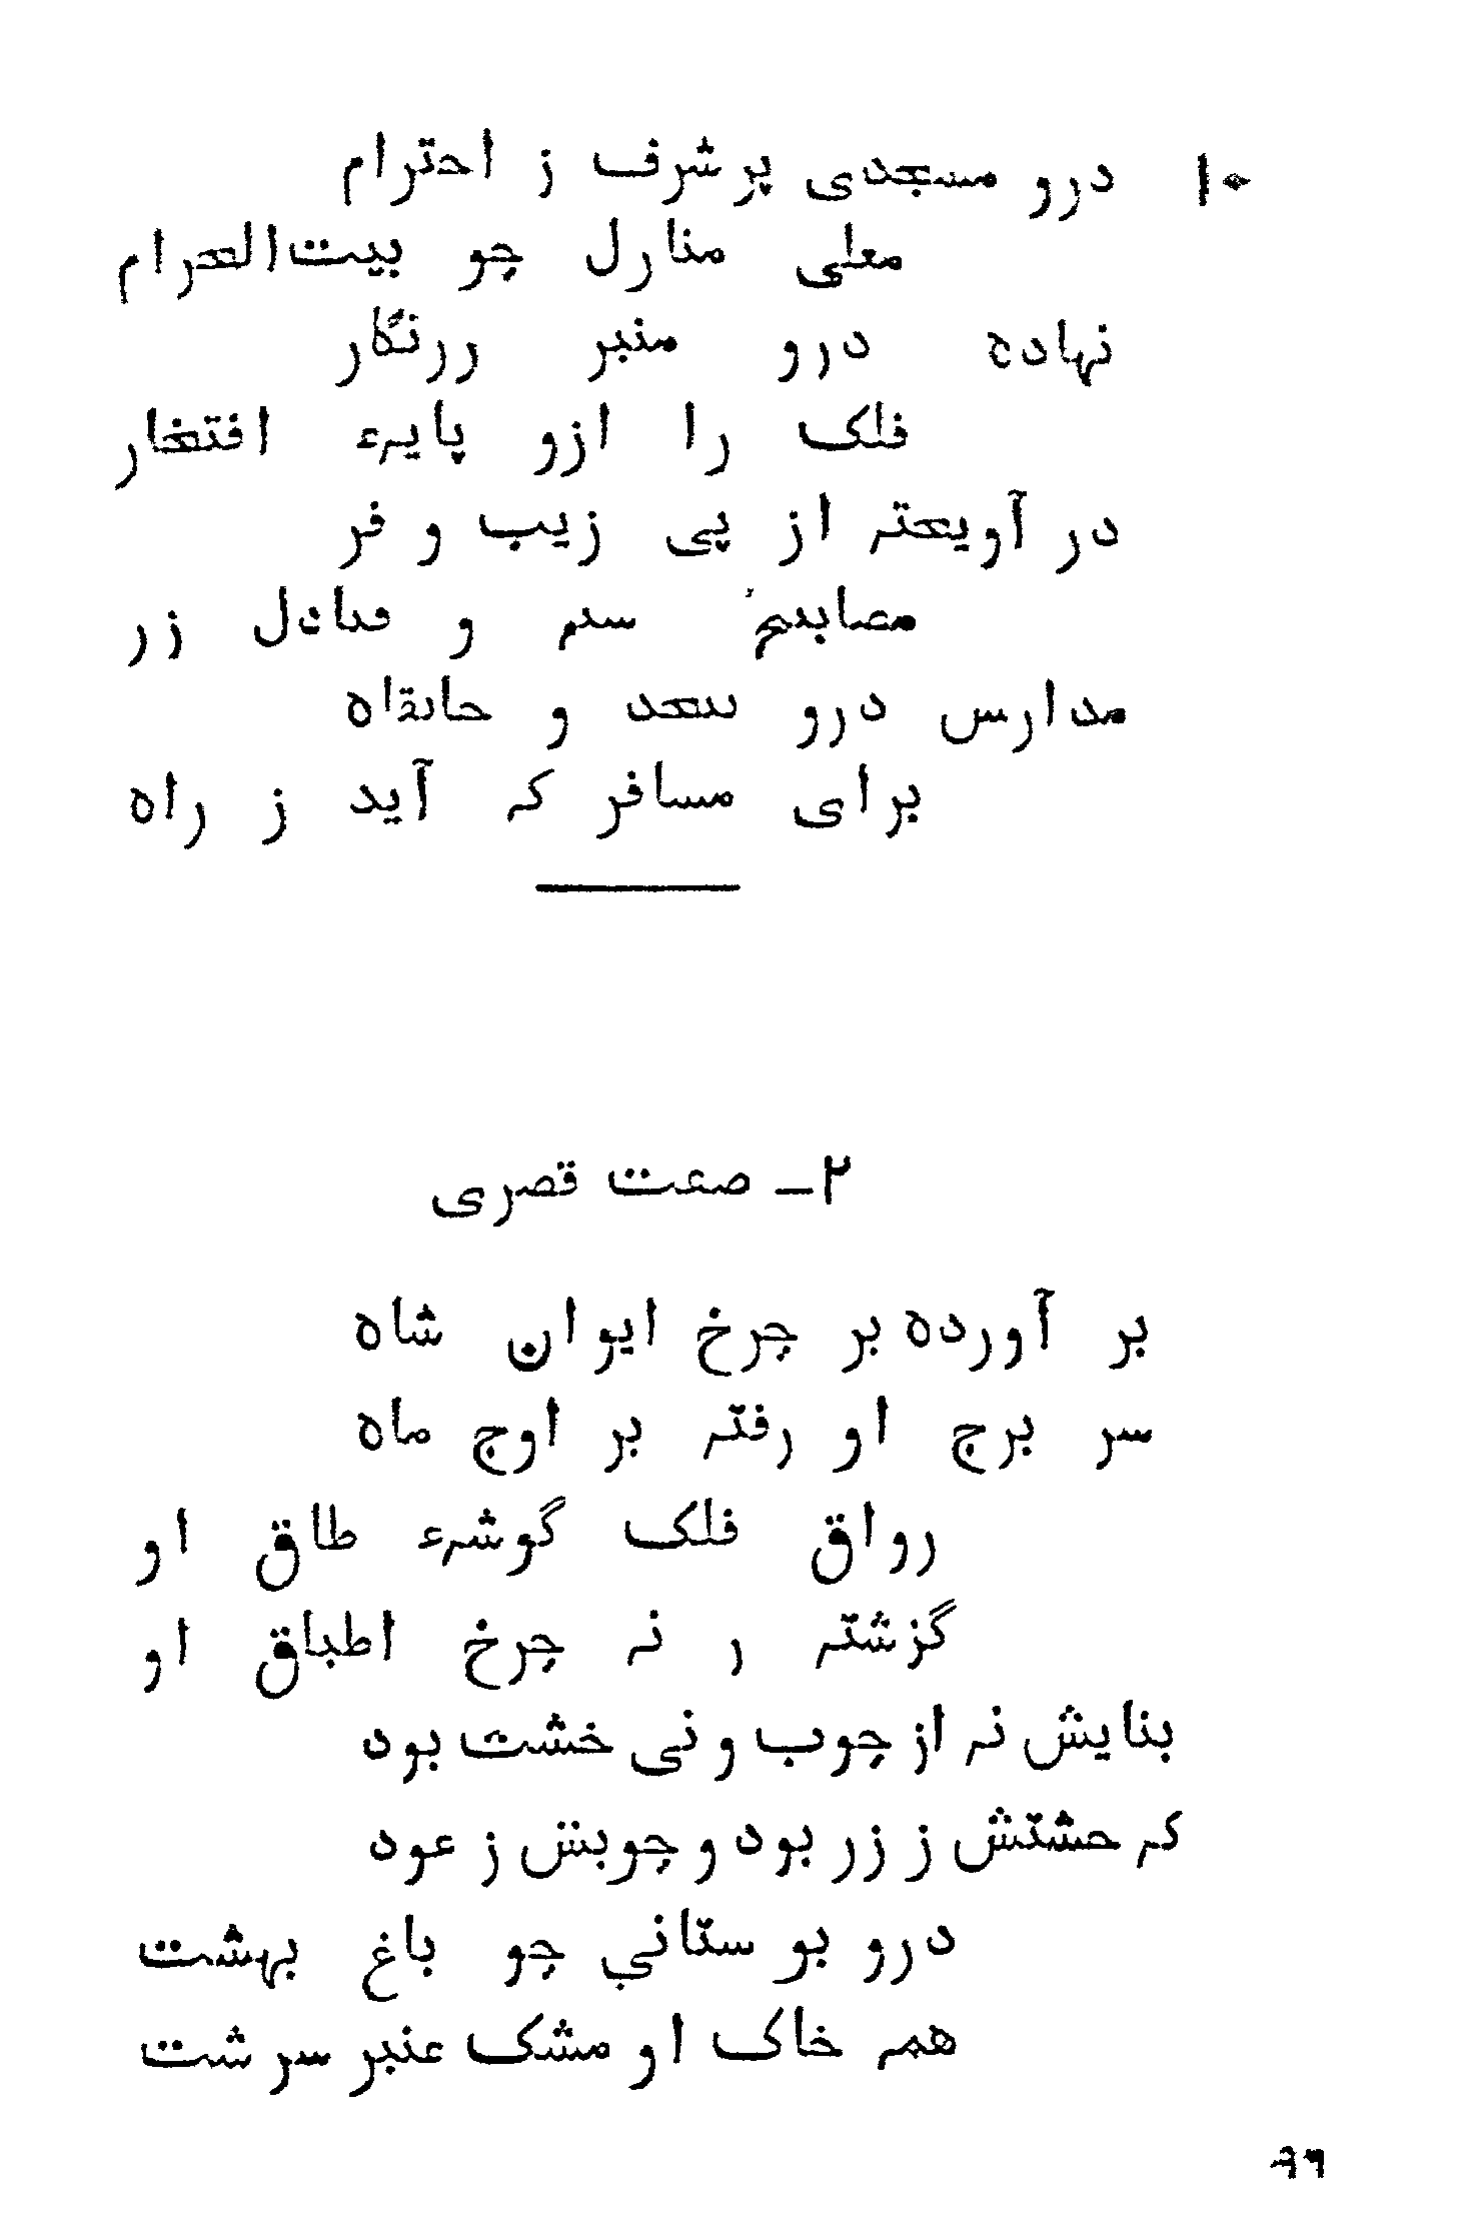 ۱۰ درو مسجدی پر شرف ز احترام
معلی منازل چو بیت‌الحرام
نهاده درو منبر زرنگار
فلک را ازو پایهٔ افتخار
در آویخته از پی زیب و فر
مصابیح سیم و قنادل زر
مدارس درو بیحد و خانقاه
برای مسافر که آید ز راه
۲ـ صفت قصری
بر آورده بر چرخ ایوان شاه
سر برج او رفته بر اوج ماه
رواق فلک گوشهٔ طاق او
گزشته ز نه چرخ اطباق او
بنایش نه از چوب و نی خشت بود
که خشتش ز زر بود و چوبش ز عود
درو بوستانی چو باغ بهشت
همه خاک او مشک عنبر سرشت